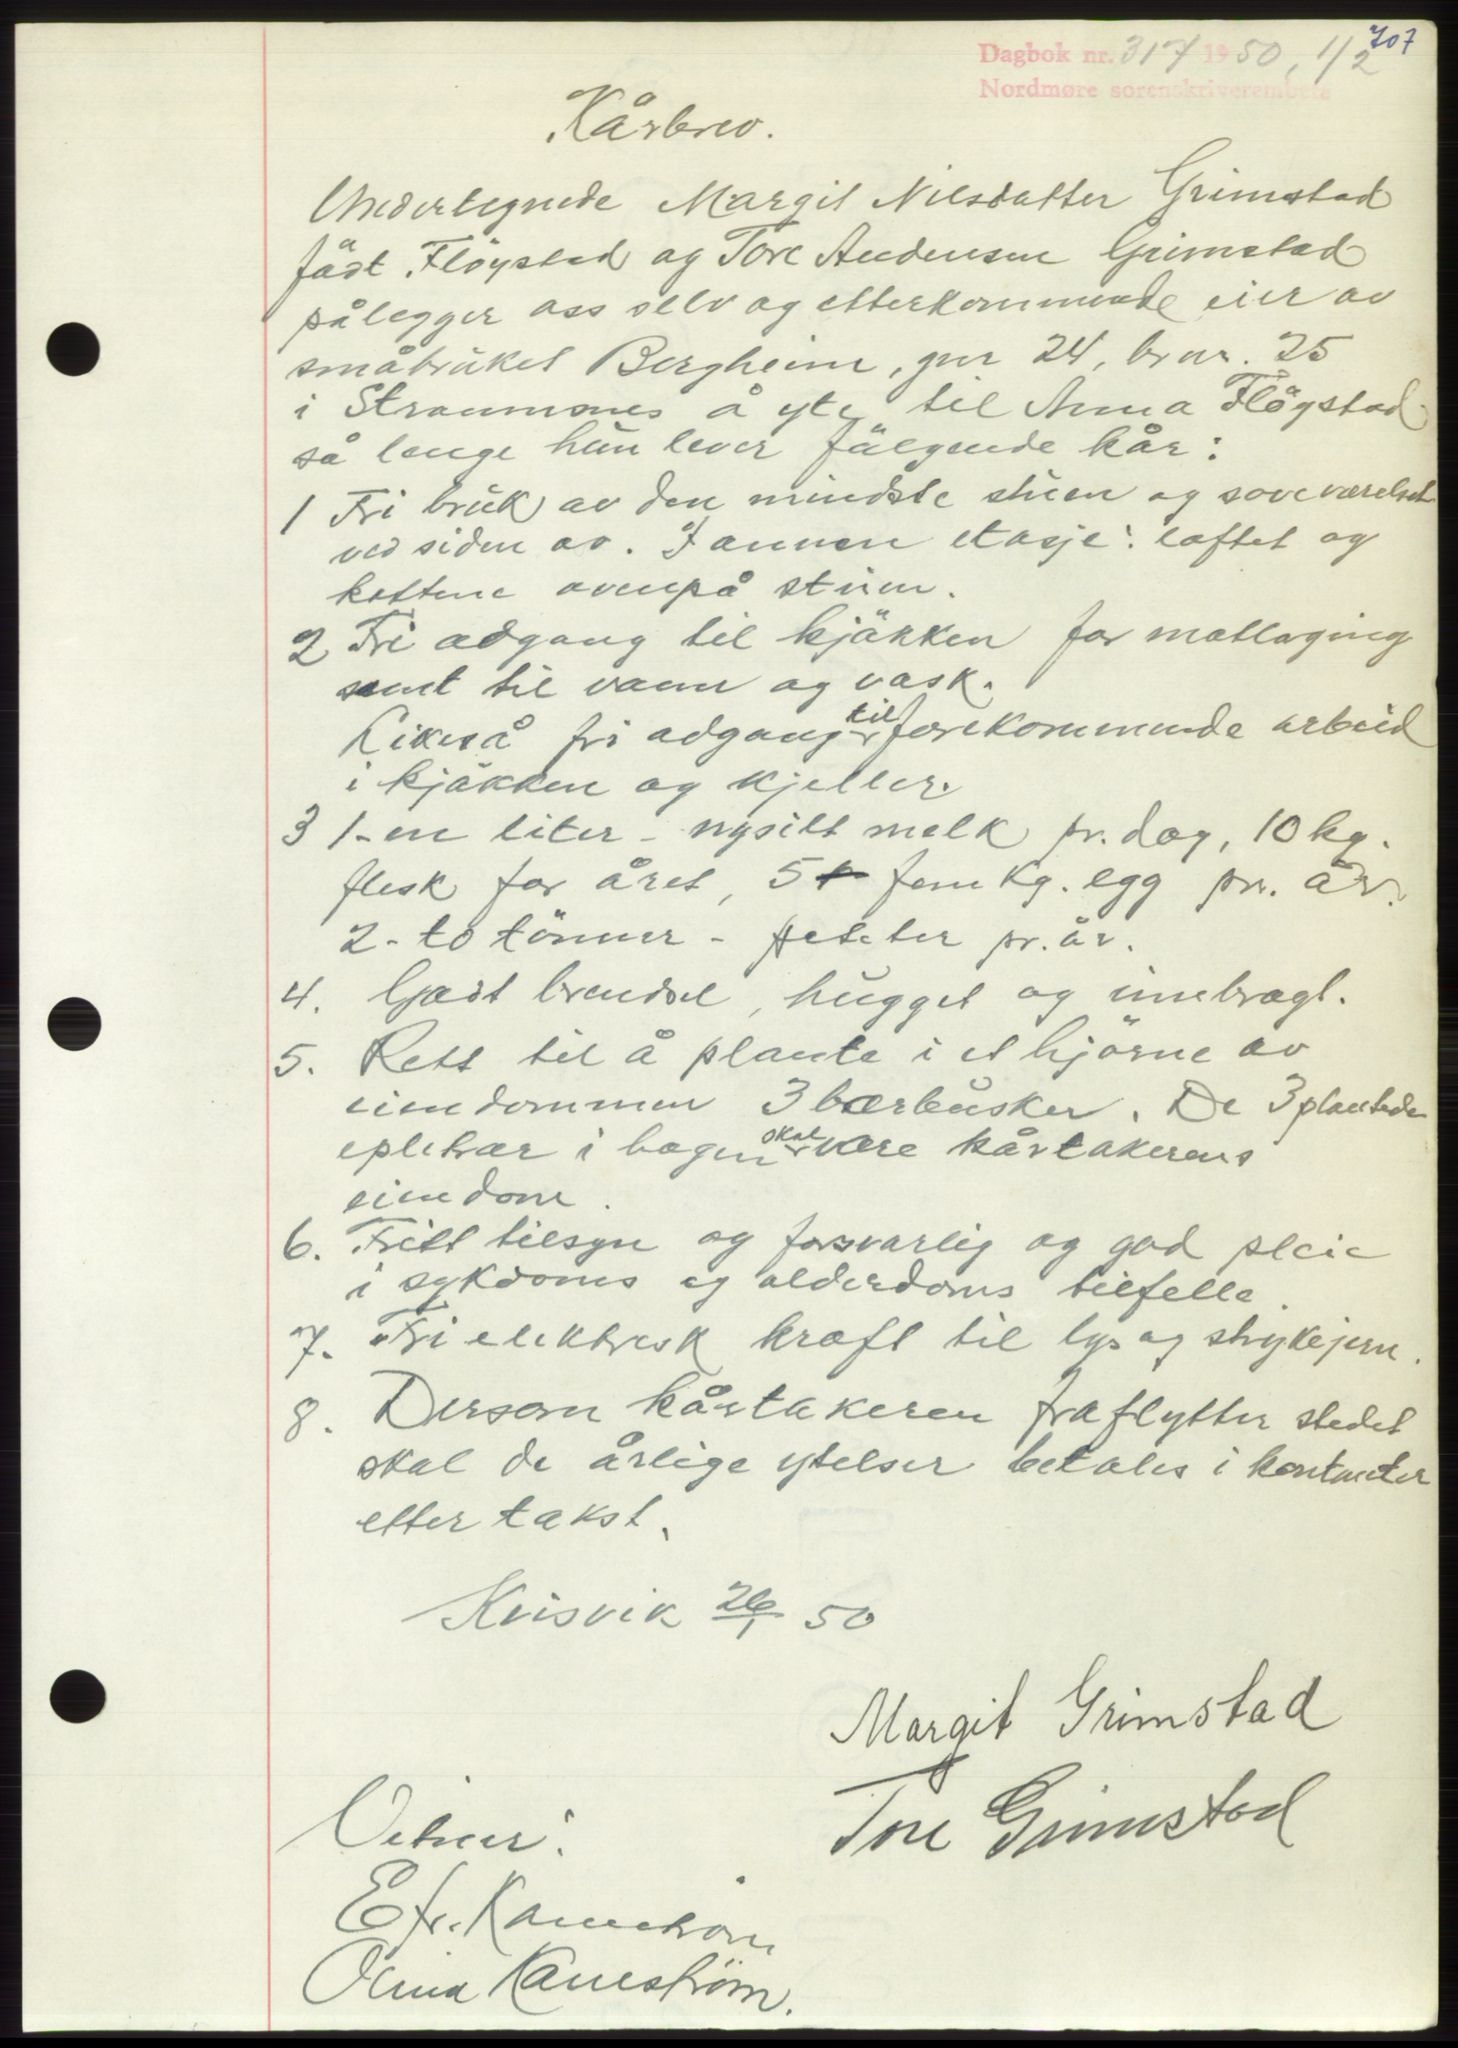 707
Dagbok nr. 317 1950, 1/2
Nordmøre sorenskriverembete
Kårbrev.
Undertegnede Margit Nilsdatter Grimstad
född Flöystad og Tore Andersen Grimstad
pålegger oss selv og etterkommende eier av
småbruket Bergheim, gnr 24, br nr. 25
i Straumsnes å yte til Anna Flöystad
så lenge hun lever fölgende kår:
1 Fri bruk av den mindste stuen og soveværelset
ved siden av. I annen etasje: loftet og
kottene ovenpå stuen.
2 Fri adgang til kjökken for matlaging
samt til vann og vask.
Likeså fri adgang til forekommende arbeid
i kjökken og kjeller.
3 1-en liter - nysilt melk pr. dag, 10 kg.
flesk for året, 5 fem kg. egg pr. år.
2 - to tönner - poteter pr. år.
4. Godt brendsel, hugget og innebragt.
5. Rett til å plante i et hjörne av
eiendommen 3 bærbusker. De 3 plantede
epletrær i hagen skal være kårtakerens
eiendom.
6. Fritt tilsyn og forsvarlig og god pleie
i sykdoms og alderdoms tilfelle.
7. Fri elektrisk kraft til lys og strykejern.
8. Dersom kårtakeren fraflytter stedet
skal de årlige ytelser betales i kontanter
etter takst.
Kvisvik 26/1 50
Margit Grimstad
Tore Grimstad
Vitner:
E fr. Kanestrøm
Olina Kanestrøm.